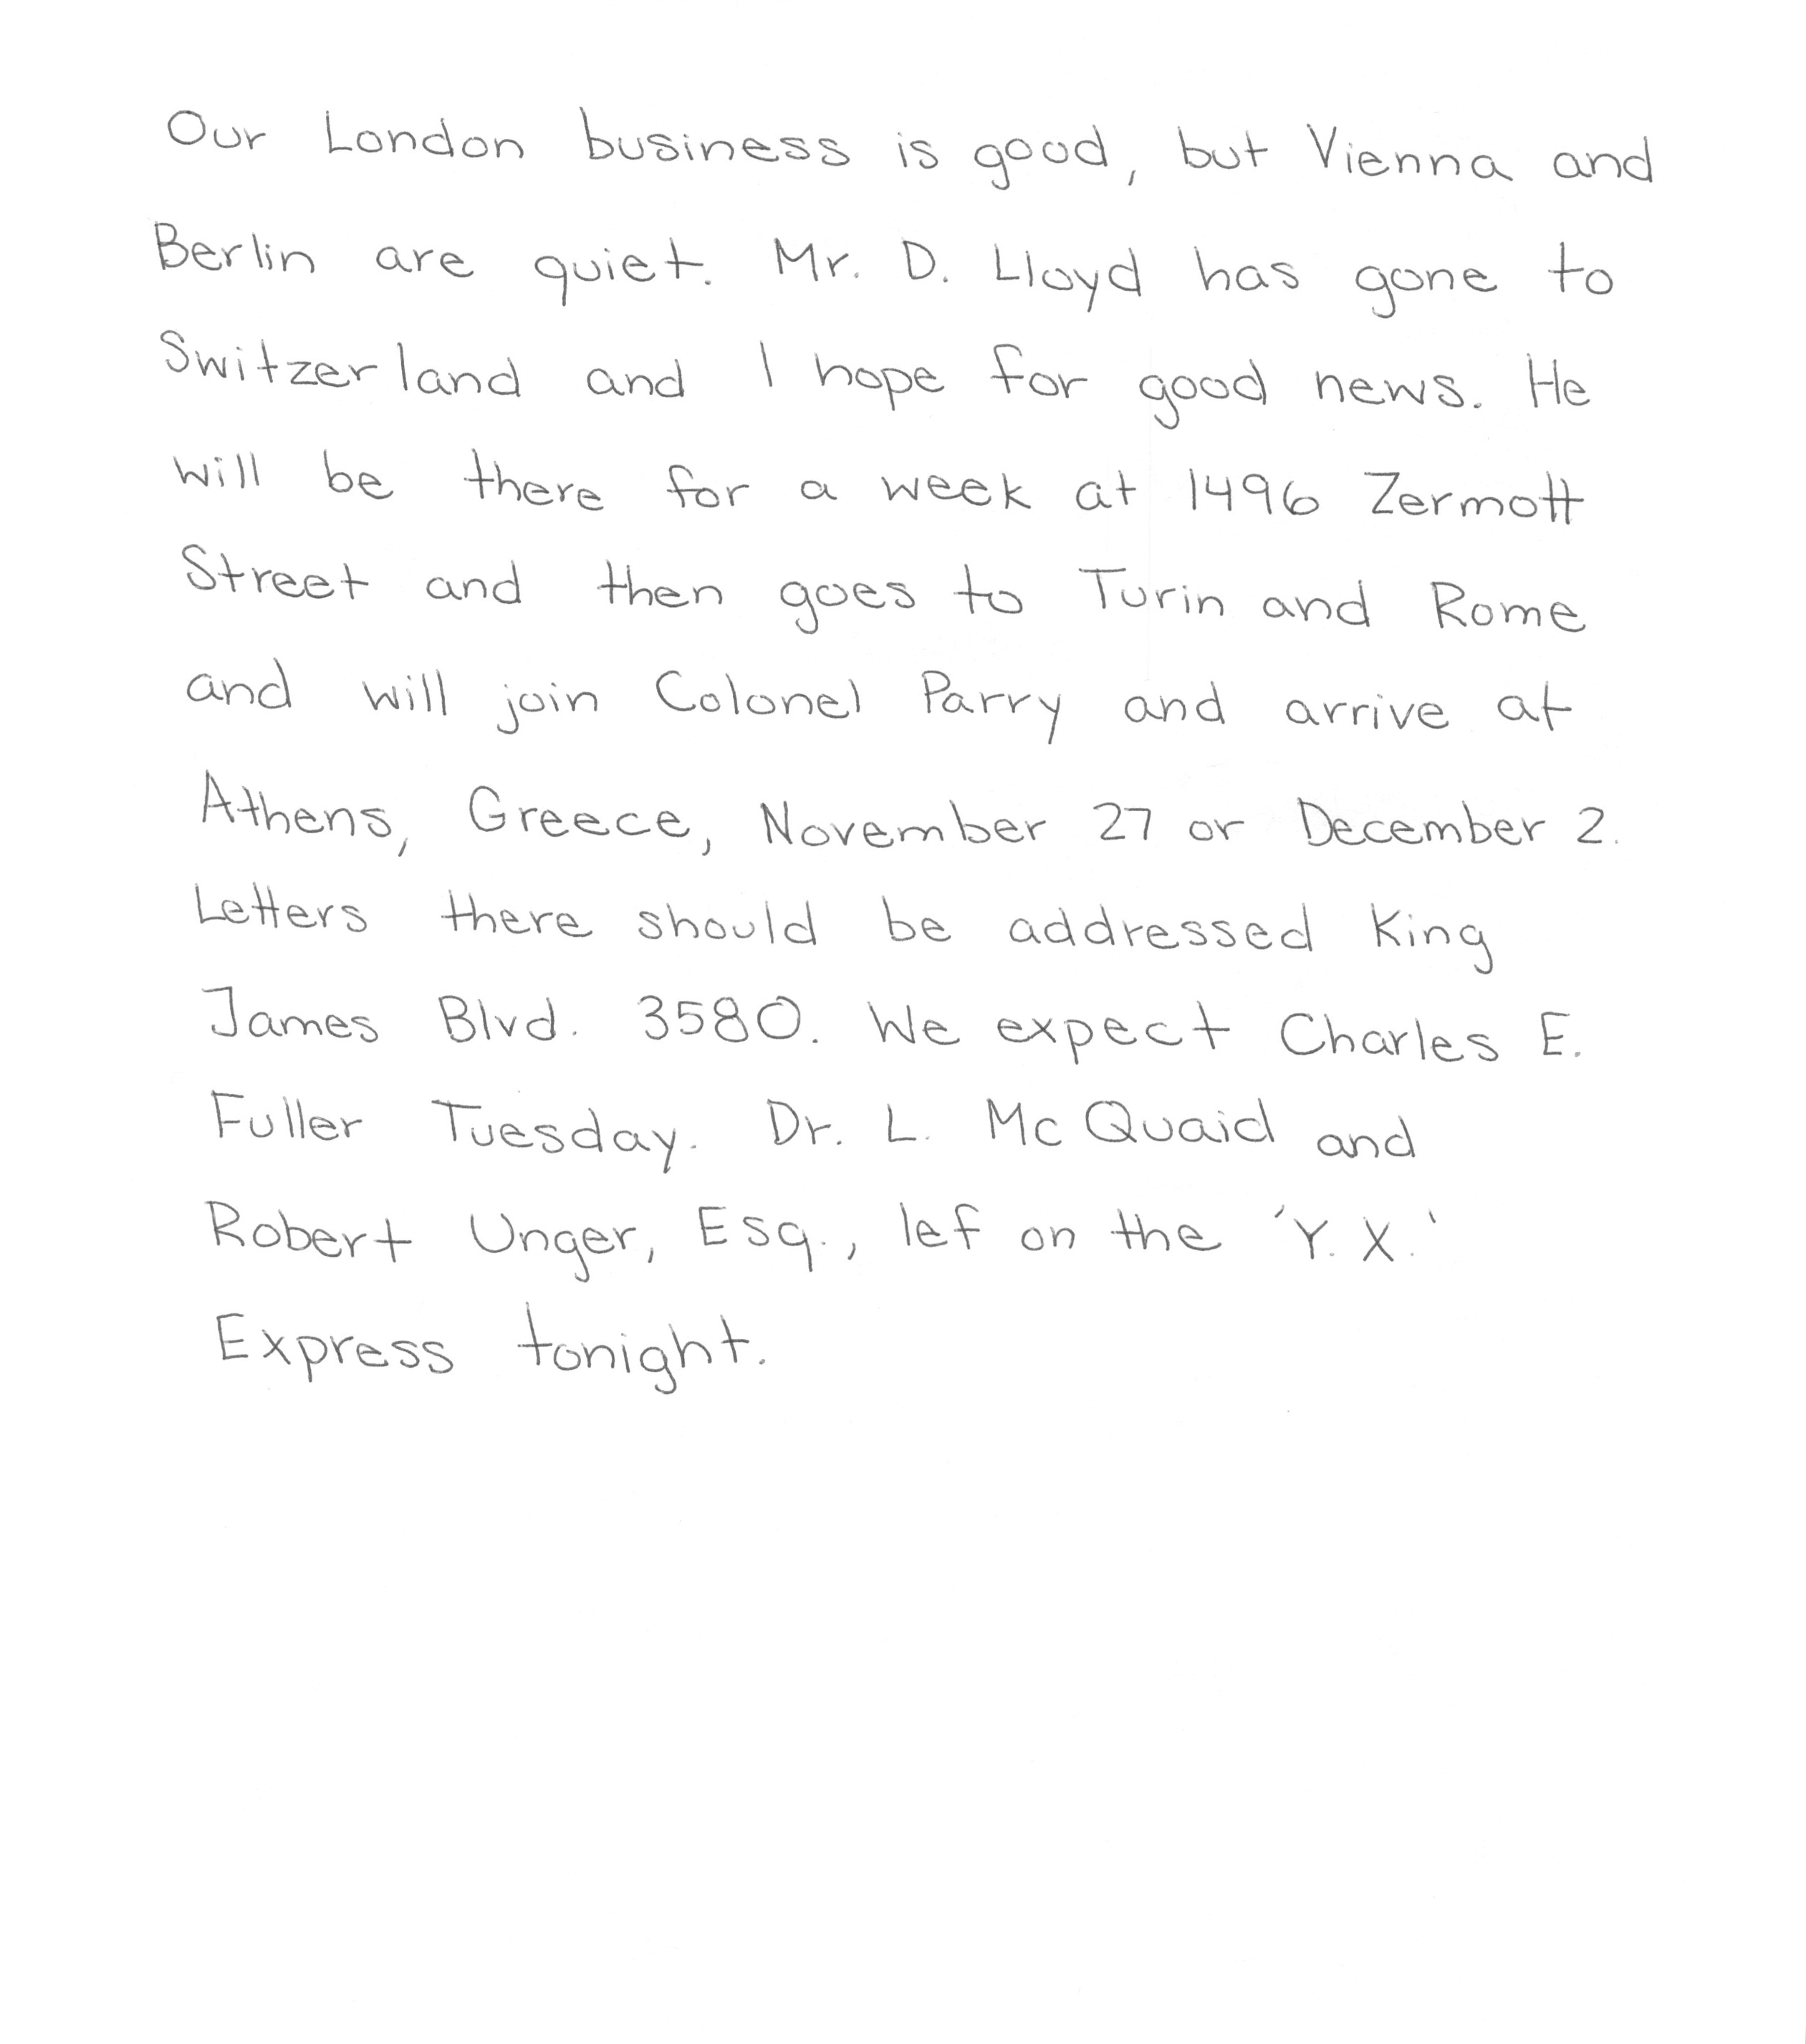 Our London business is good, but Vienna and
Berlin are quiet. Mr. D. Lloyd has gone to
Switzerland and I hope for good news. He
will be there for a week at 1496 Zermott
Street and then goes to Turin and Rome
and will join Colonel Parry and arrive at
Athens, Greece, November 27 or December 2.
Letters there should be addressed King
James Blvd. 3580. We expect Charles E.
Fuller Tuesday. Dr. L. McQuaid and
Robert Unger, Esq., lef on the 'Y.X.'
Express tonight.